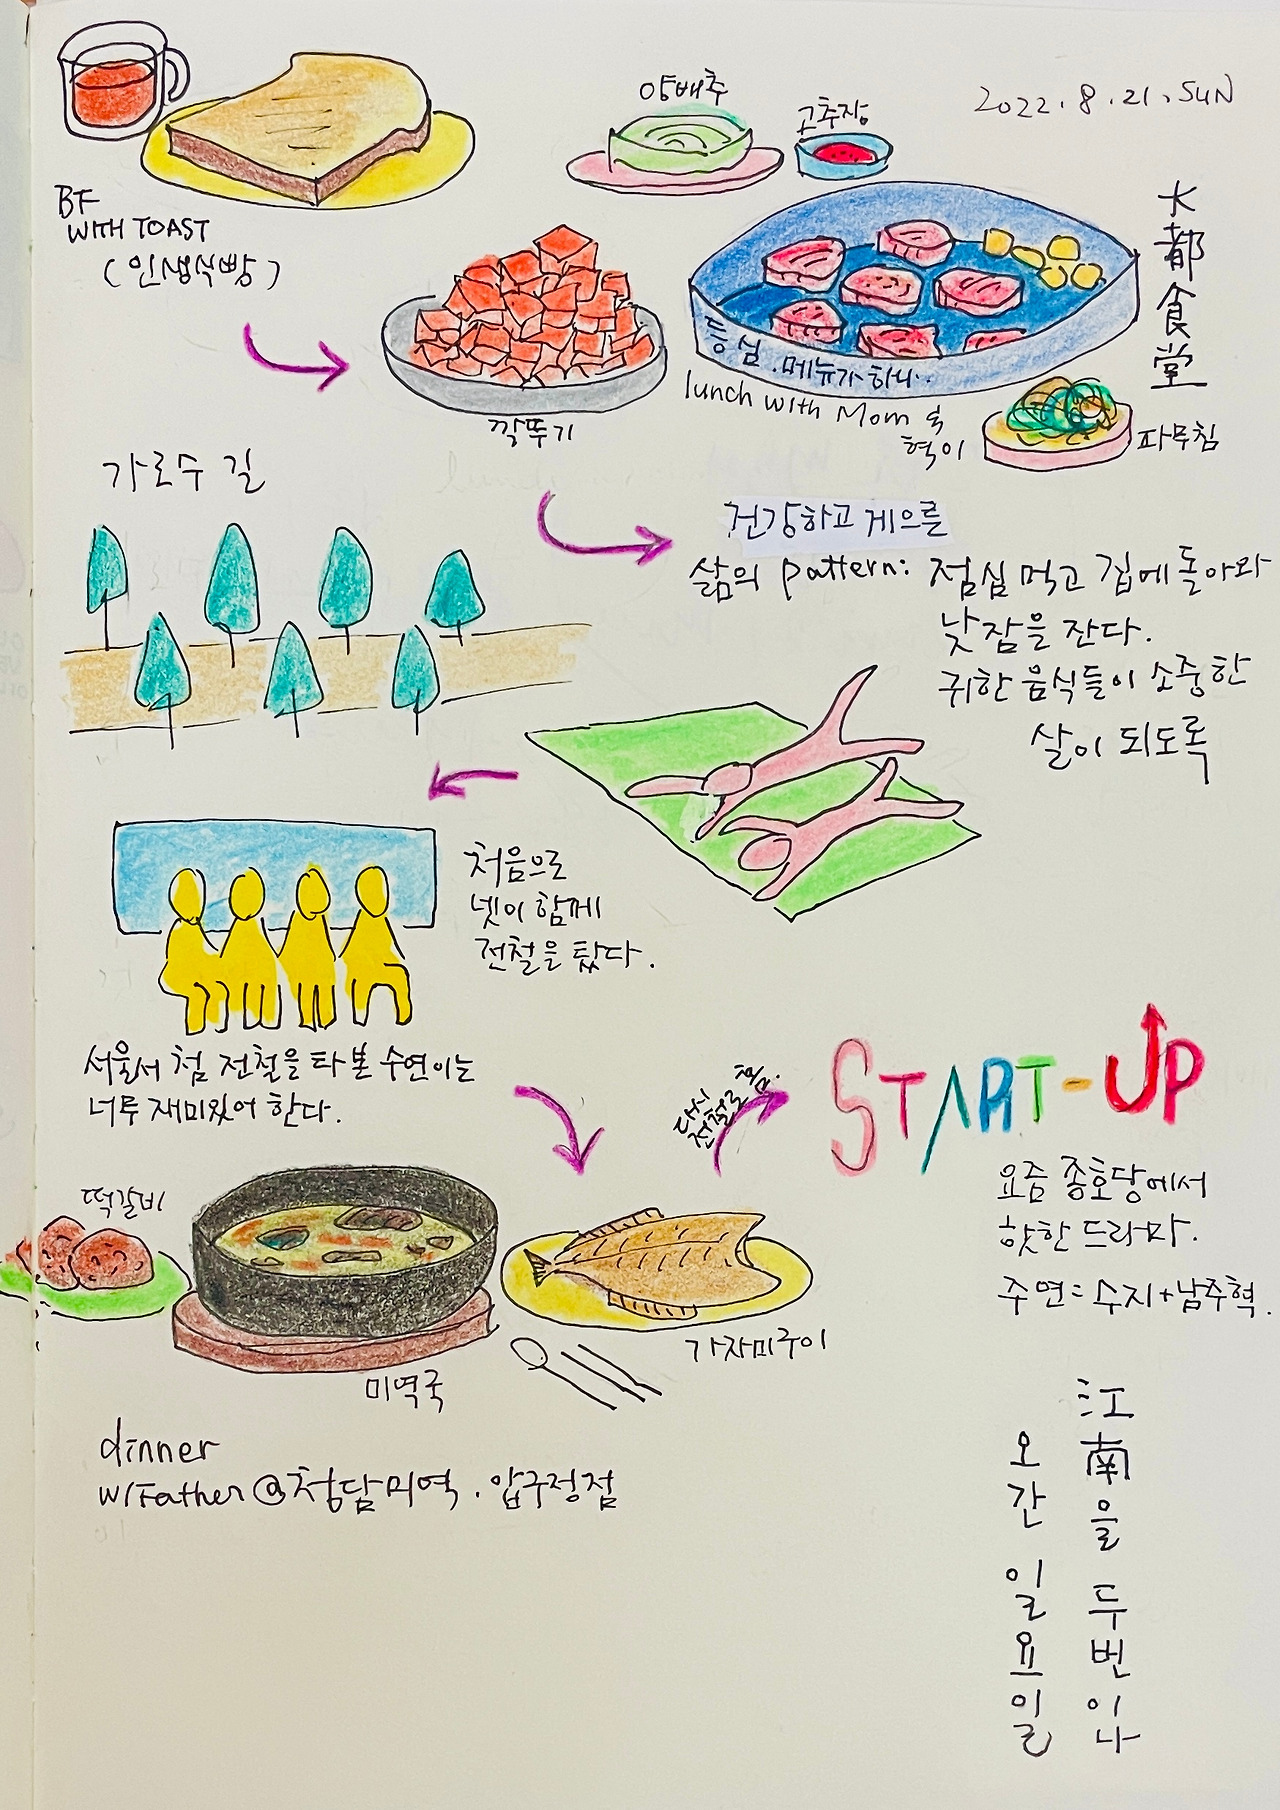 2022.8.21.SUN
BF
WITH TOAST
(인생식빵)
양배추
고추장
大都食堂
등심.메뉴가 하나..
lunch with Mom &
혁이
파무침
깍뚜기
가로수 길
건강하고 게으른
삶의 pattern: 점심 먹고 집에 돌아와
낮잠을 잔다.
귀한 음식들이 소중한
살이 되도록
처음으로
넷이 함께
전철을 탔다.
서울서 첨 전철을 타 본 수연이는
너무 재미있어 한다.
다시
전철로
START-UP
요즘 종호당에서
핫한 드라마.
주연=수지+남주혁.
떡갈비
미역국
가자미구이
dinner
w/Father @청담미역.압구정점
江南을 두번이나
오간 일요일